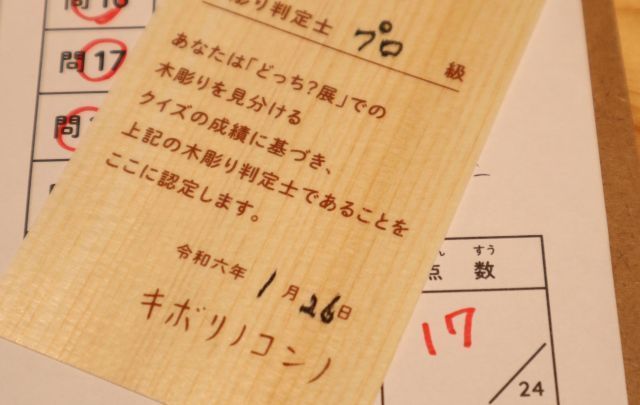 問16
問17
問
彫り判定士 プロ 級
あなたは「どっち?展」での
木彫りを見分ける
クイズの成績に基づき、
上記の木彫り判定士であることを
ここに認定します。
令和六年 1月26日
キボリノコンノ
ん すう
点 数
17
24